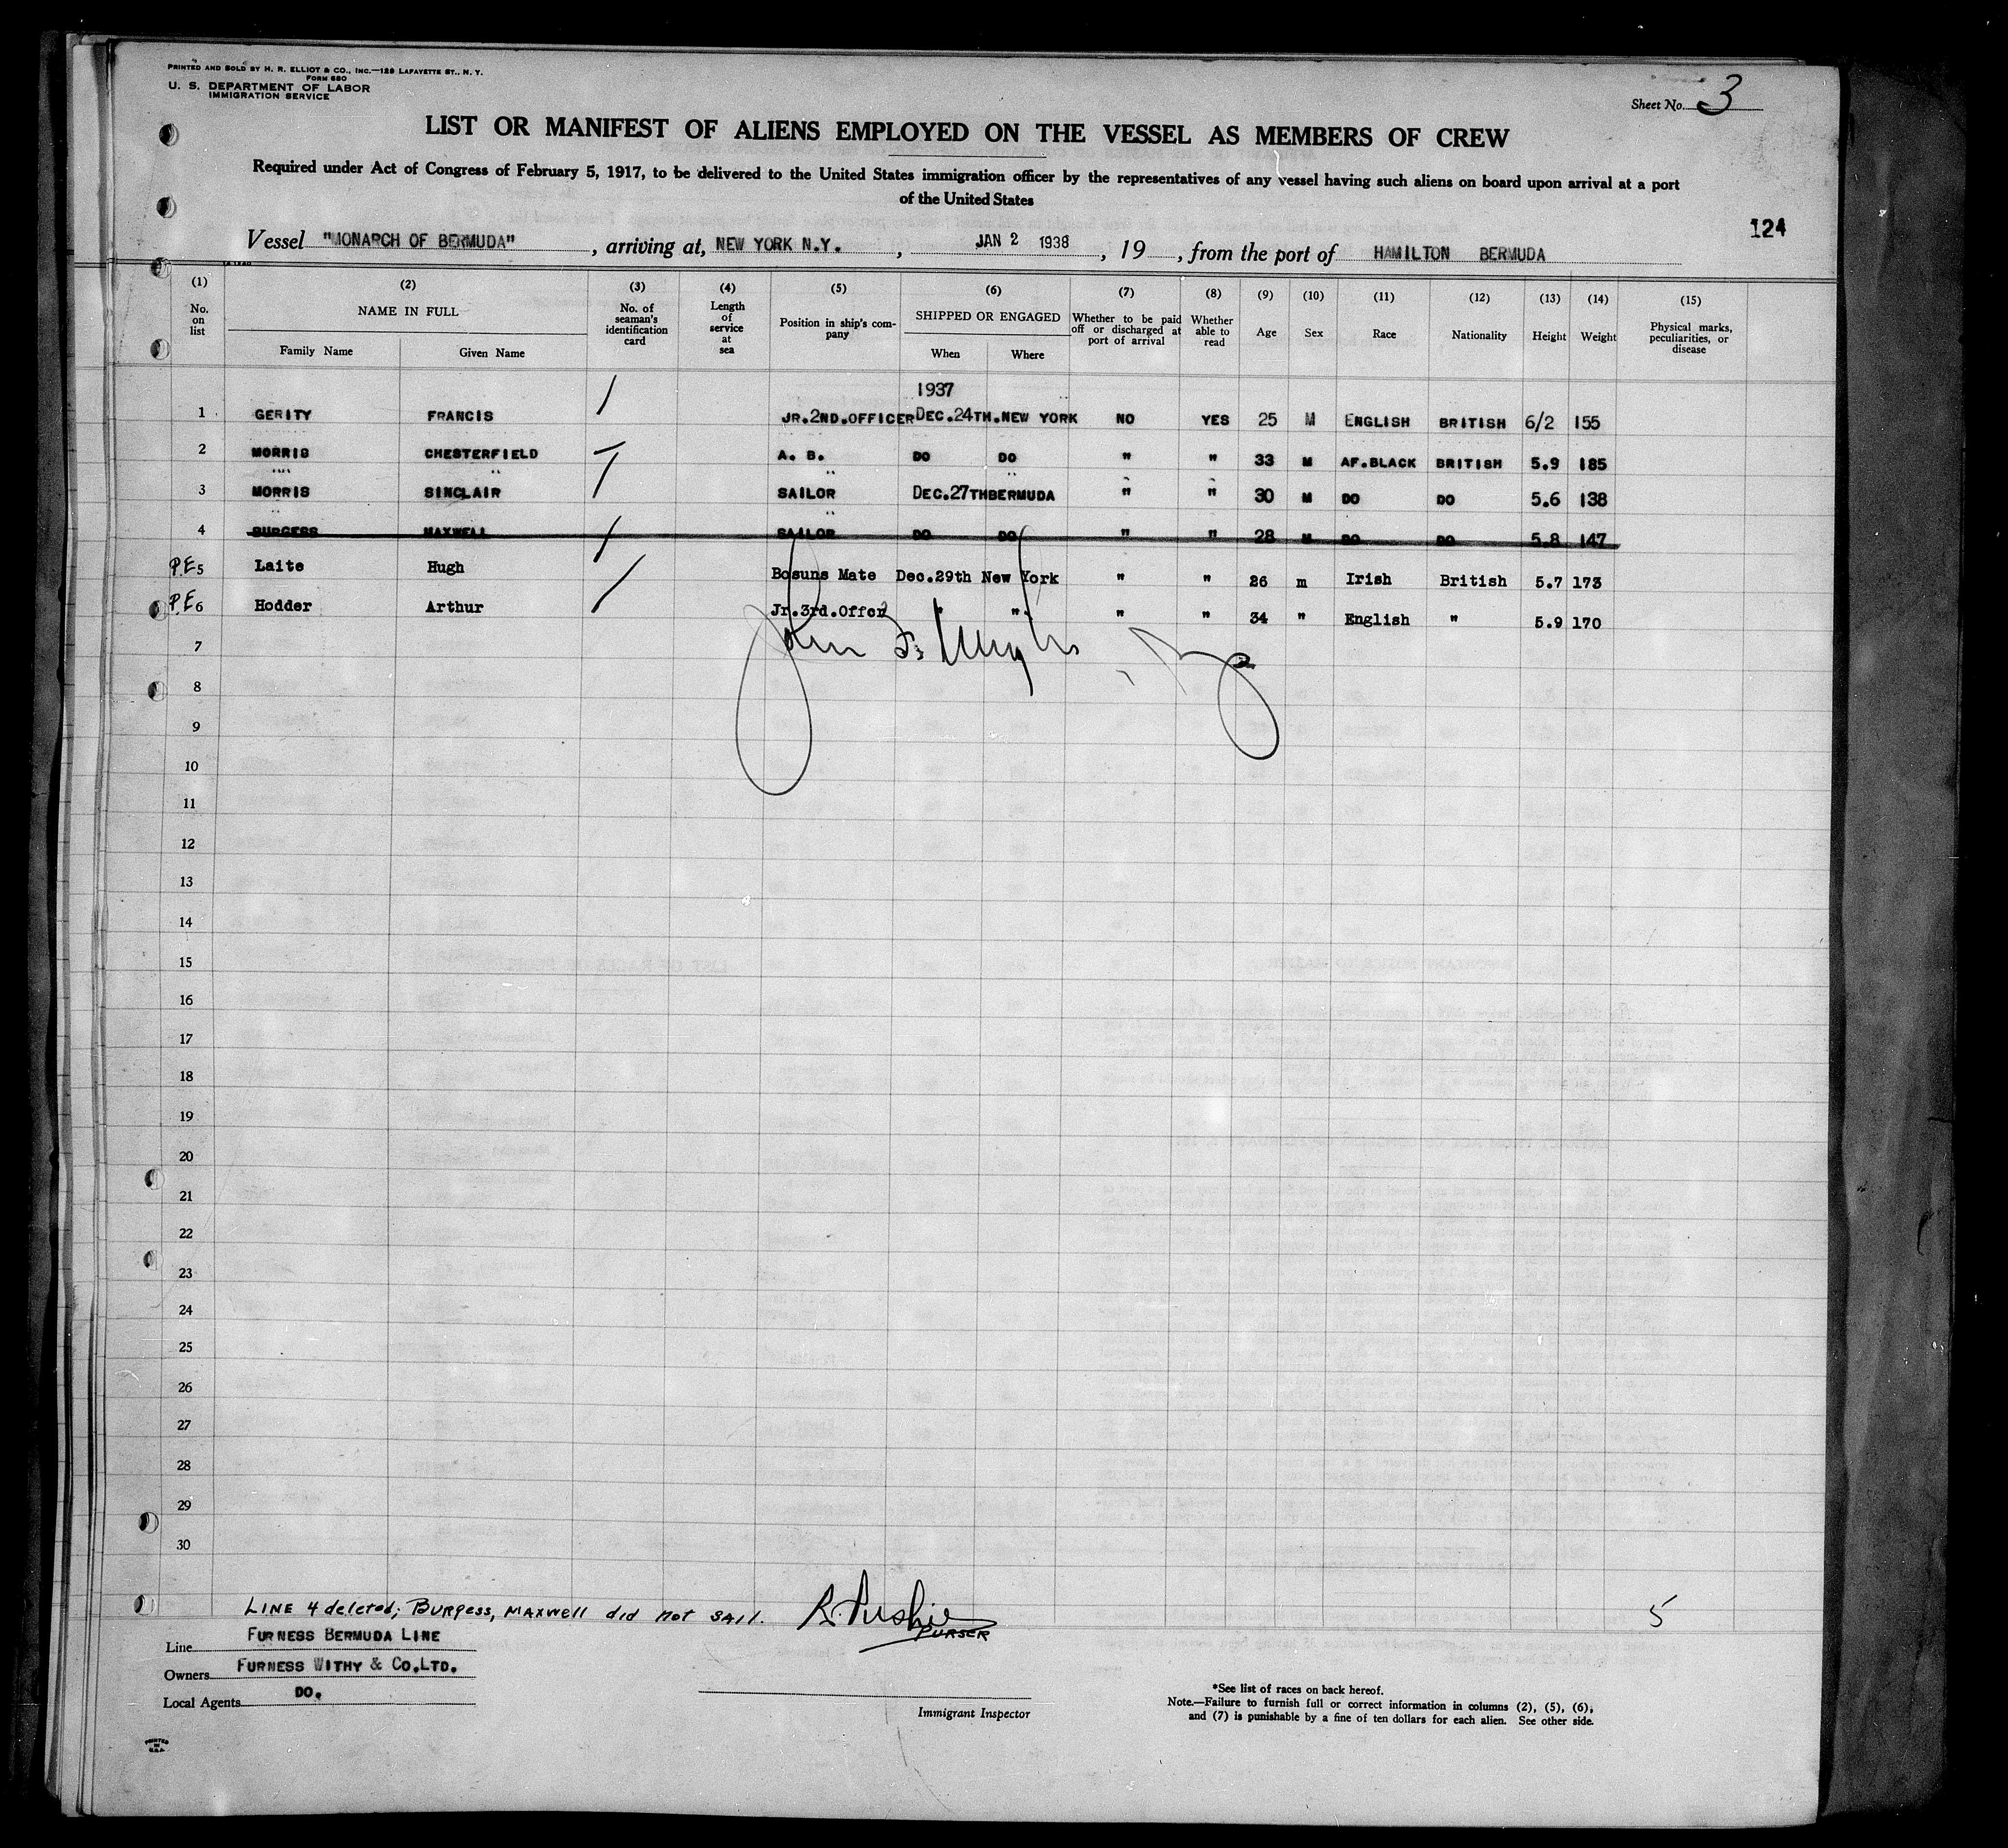 PRINTED AND SOLD BY H. R. ELLIOT & CO., INC.—129 LAFAYETTE ST., N. Y.
FORM 680
U. S. DEPARTMENT OF LABOR
IMMIGRATION SERVICE
Sheet No. 3
LIST OR MANIFEST OF ALIENS EMPLOYED ON THE VESSEL AS MEMBERS OF CREW
Required under Act of Congress of February 5, 1917, to be delivered to the United States immigration officer by the representatives of any vessel having such aliens on board upon arrival at a port
of the United States
124
Vessel "MONARCH OF BERMUDA", arriving at, NEW YORK N.Y., JAN 2 1938, 19, from the port of HAMILTON BERMUDA
(1) (2) (3) (4) (5) (6) (7) (8) (9) (10) (11) (12) (13) (14) (15)
No. on list
NAME IN FULL
Family Name Given Name
No. of seaman's identification card
Length of service at sea
Position in ship's company
SHIPPED OR ENGAGED
When Where
Whether to be paid off or discharged at port of arrival
Whether able to read
Age
Sex
Race
Nationality
Height
Weight
Physical marks, peculiarities, or disease
1937
1 GERITY FRANCIS / JR.2ND.OFFICER DEC.24TH.NEW YORK NO YES 25 M ENGLISH BRITISH 6/2 155
2 MORRIS CHESTERFIELD / A. B. DO DO " " 33 M AF.BLACK BRITISH 5.9 185
3 MORRIS SINCLAIR / SAILOR DEC.27TH BERMUDA " " 30 M DO DO 5.6 138
4 BURGESS MAXWELL / SAILOR DO DO " " 28 M DO DO 5.8 147
P.E 5 Laite Hugh / Bosuns Mate Dec.29th New York " " 26 m Irish British 5.7 173
P.E 6 Hodder Arthur / Jr.3rd.Offcr " " " " 34 " English " 5.9 170
7
8
9
10
11
12
13
14
15
16
17
18
19
20
21
22
23
24
25
26
27
28
29
30
LINE 4 deleted; Burgess, Maxwell did not sail.
PURSER
5
Line FURNESS BERMUDA LINE
Owners FURNESS WITHY & CO.LTD.
Local Agents DO.
Immigrant Inspector
*See list of races on back hereof.
Note.—Failure to furnish full or correct information in columns (2), (5), (6), and (7) is punishable by a fine of ten dollars for each alien. See other side.
PRINTED
IN
U.S.A.